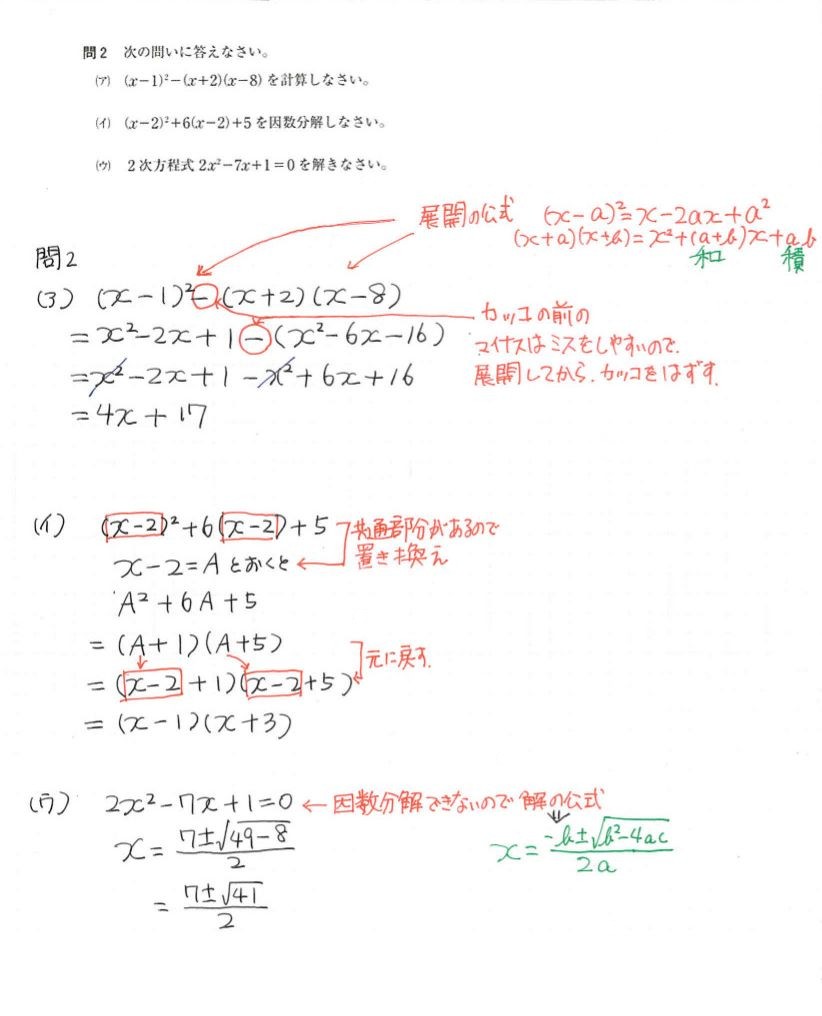 問2 次の問いに答えなさい。
(ア) (x−1)²−(x+2)(x−8) を計算しなさい。
(イ) (x−2)²+6(x−2)+5 を因数分解しなさい。
(ウ) 2次方程式 2x²−7x+1=0 を解きなさい。
展開の公式 (x−a)²=x−2ax+a²
(x+a)(x+b)=x²+(a+b)x+ab
和 積
問2
(ヨ) (x−1)²−(x+2)(x−8)
=x²−2x+1−(x²−6x−16)
=x²−2x+1−x²+6x+16
=4x+17
カッコの前の
マイナスはミスをしやすいので、
展開してから、カッコをはずす。
(イ) (x−2)²+6(x−2)+5
共通部分があるので
置き換え
x−2=Aとおくと
A²+6A+5
=(A+1)(A+5)
元に戻す。
=(x−2+1)(x−2+5)
=(x−1)(x+3)
(ウ) 2x²−7x+1=0 ← 因数分解できないので解の公式
x=(7±√(49−8))/2
=(7±√41)/2
x=(−b±√(b²−4ac))/2a